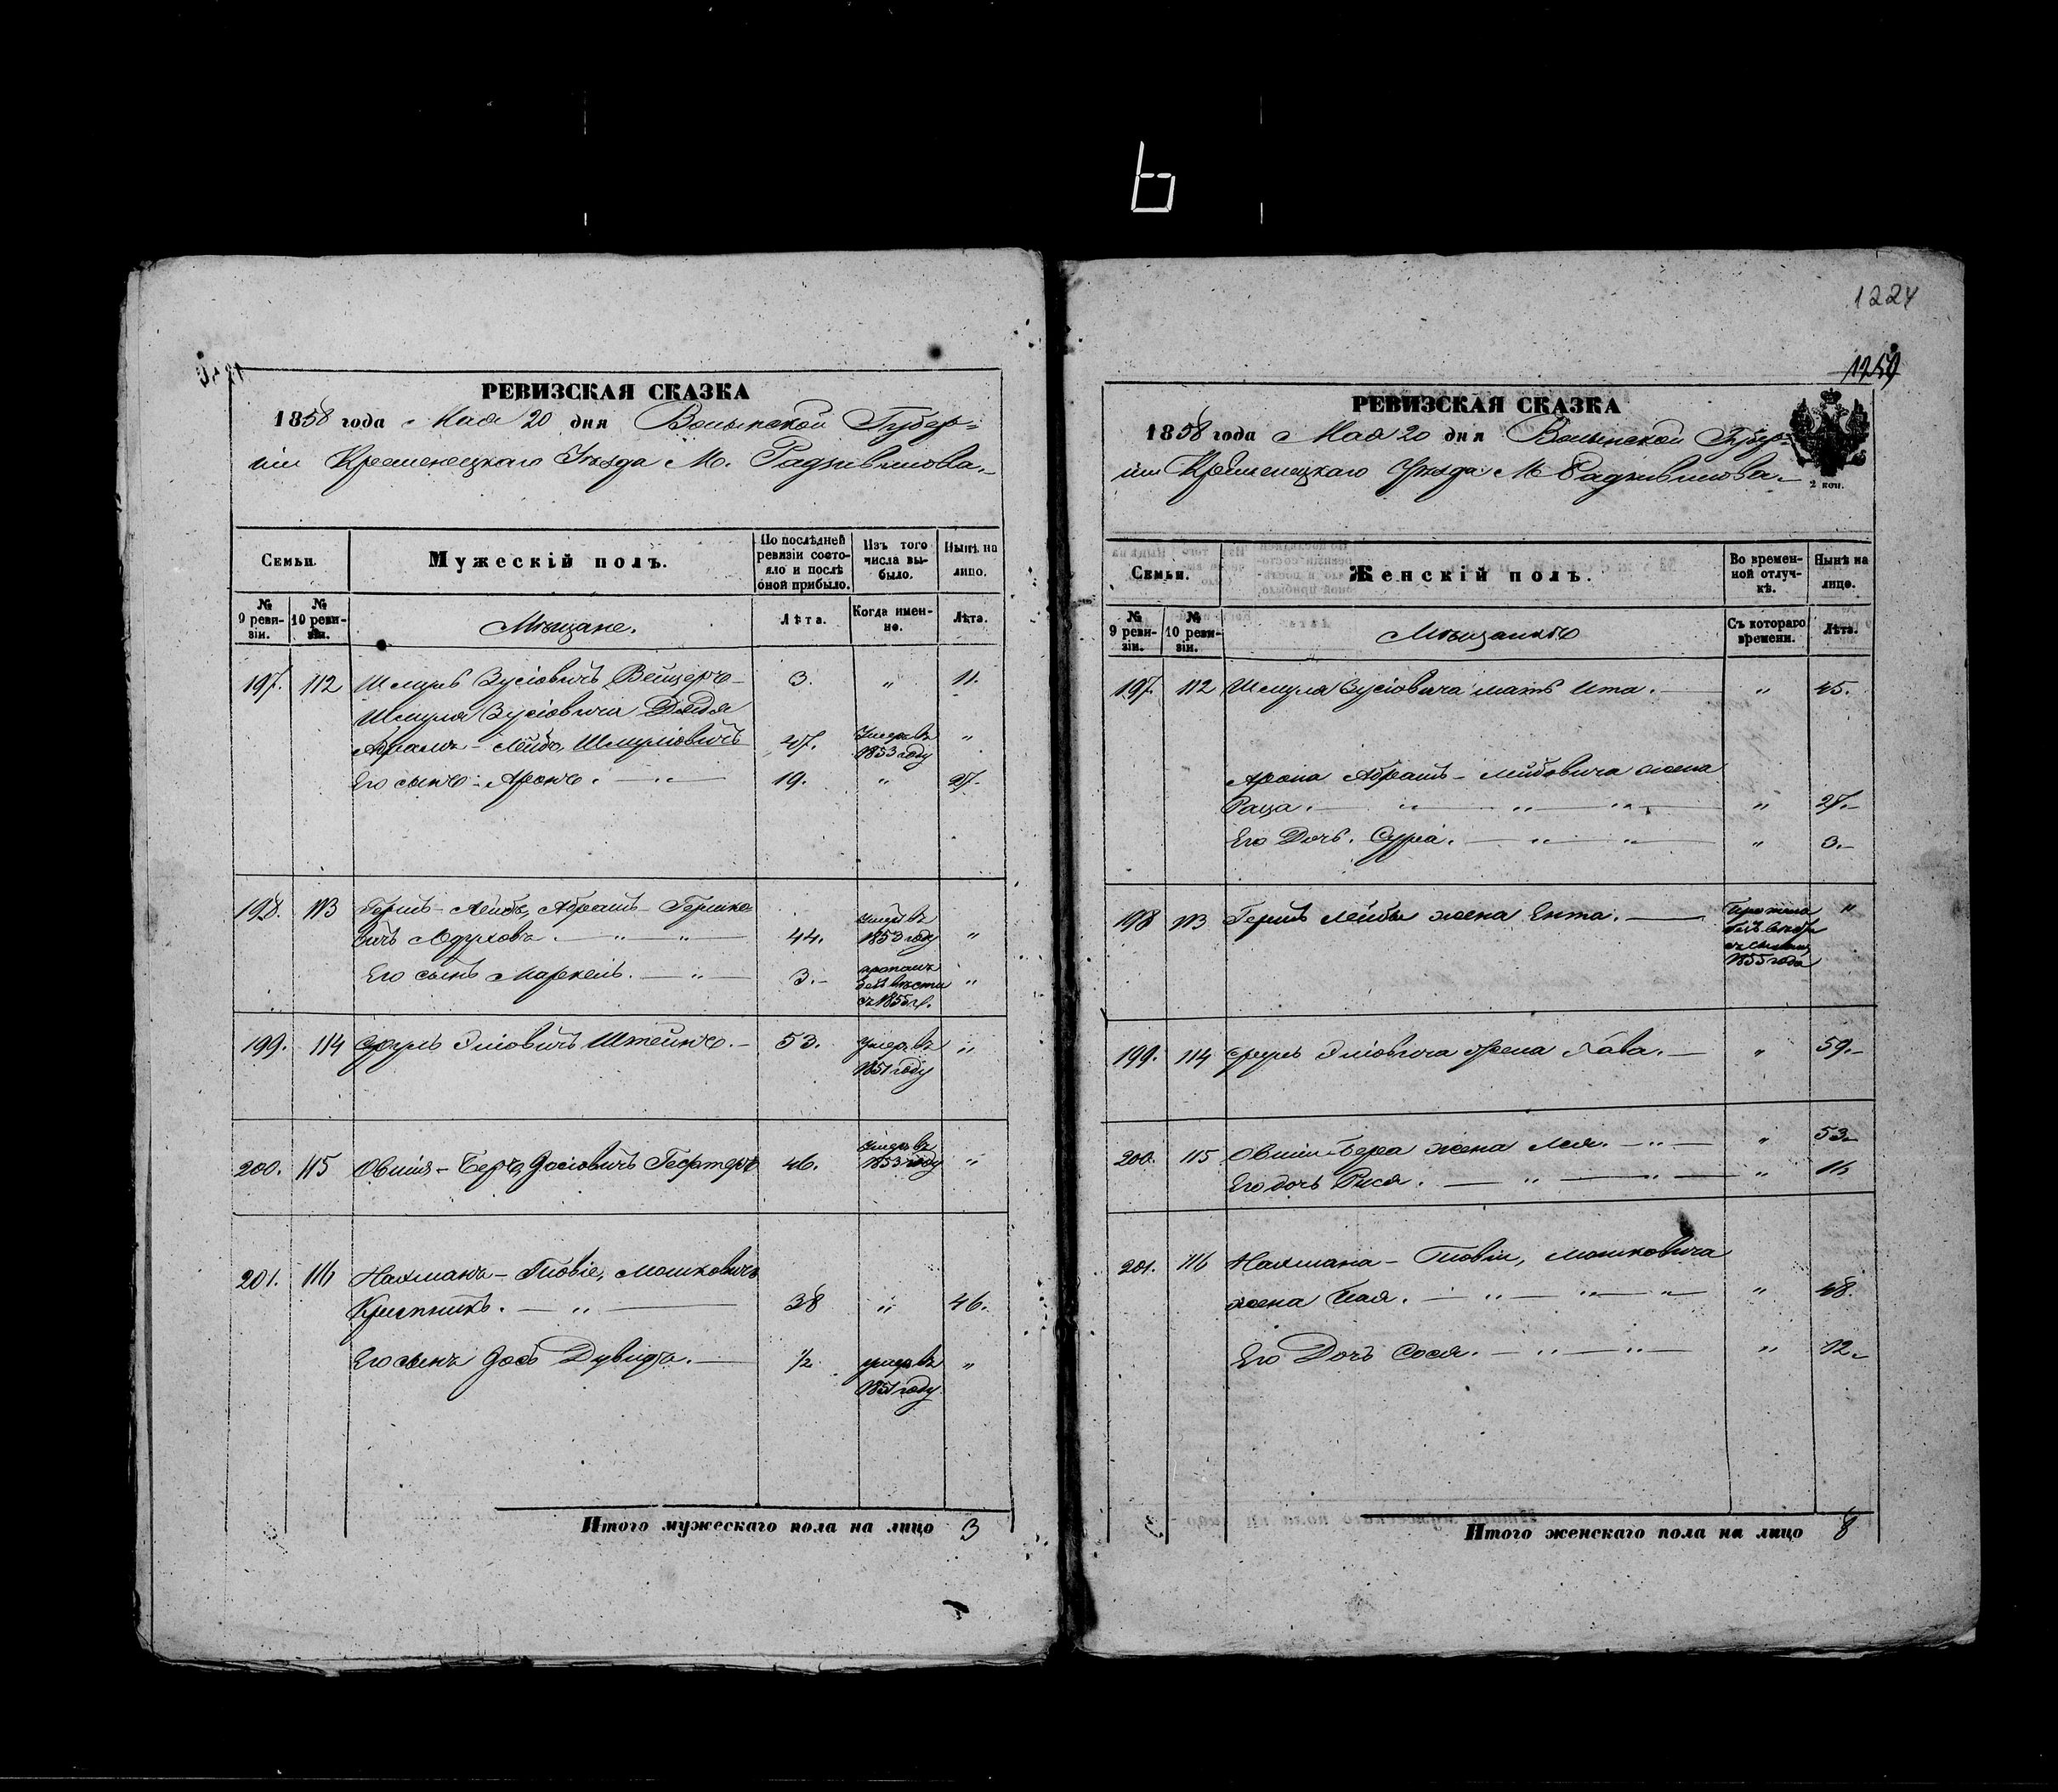 РЕВИЗСКАЯ СКАЗКА
1858 года Мая 20 дня Волынской Губер-
ніи Кременецкаго Уѣзда М. Радзивилова
Семьи.
Мужескій полъ.
По послѣдней ревизіи состояло и послѣ оной прибыло.
Изъ того числа выбыло.
Нынѣ на лицо.
№ 9 ревизіи.
№ 10 ревизіи.
Мѣщане.
Лѣта.
Когда именно.
Лѣта.
197. 112 Шмуль Зусіовичъ Вейцеръ 3. „ 11.
Шмуля Зусіовича Дядя
Абрамъ-Лейба Шмуліовичъ 47. Умеръ въ 1853 году „
Его сынъ Аронъ. 19. „ 27.
198. 113 Гершъ-Лейбъ, Абрамъ-Гершко-
вичъ 44. умеръ въ 1853 году „
Его сынъ Маркель. 3. пропалъ безъ вѣсти съ 1855 г. „
199. 114 Сруль Эліовичъ Штейнъ. 53. умеръ въ 1851 году „
200. 115 Овшія-Беръ Іосіовичъ 46. умеръ въ 1853 году „
201. 116 Нахманъ-Товіе, Мошковичъ
38 „ 46.
Его сынъ Іось Дувидъ. ½ умеръ въ 1851 году „
Итого мужескаго пола на лицо 3
1224
1259
РЕВИЗСКАЯ СКАЗКА
1858 года Мая 20 дня Волынской Губер-
ніи Кременецкаго Уѣзда М. Радзивилова
2 коп.
Семьи.
Женскій полъ.
Во временной отлучкѣ.
Нынѣ на лицо.
№ 9 ревизіи.
№ 10 ревизіи.
Мѣщанкѣ
Съ котораго времени.
Лѣта.
197. 112 Шмуля Зусіовича мать Ита. „ 45.
Арона Абрамъ-Лейбовича жена
Раца. „ 27.
Его Дочь Сура. „ 3.
198 113 Гершъ Лейбы жена Ента. „
1855 года
199. 114 Сруль Эліовича жена Хава. „ 59.
200. 115 Овшіи-Бера жена Лея. „ 53
Его дочь Рися. „ 16
201. 116 Нахмана-Товіи, Мошковича
жена Хая. „ 48.
Его Дочь Сося. „ 12.
Итого женскаго пола на лицо 8